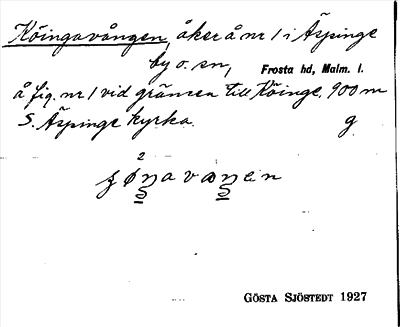 Köingavången, åker å nr 1 i Äspinge
by o. sn, Frosta hd, Malm. l.
å fig. nr 1 vid gränsen till Köinge. 900 m
S. Äspinge kyrka. g
2
GÖSTA SJÖSTEDT 1927